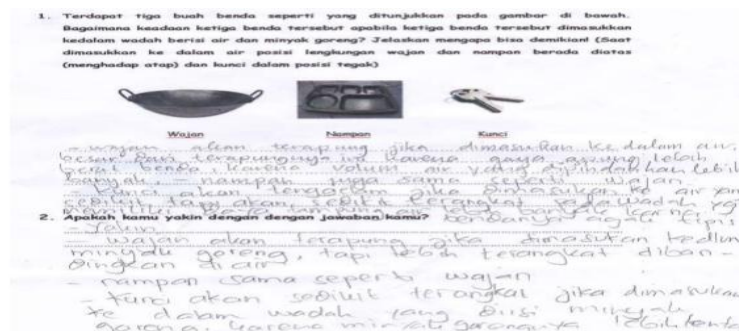 1. Terdapat tiga buah benda seperti yang ditunjukkan pada gambar di bawah.
Bagaimana keadaan ketiga benda tersebut apabila ketiga benda tersebut dimasukkan
kedalam wadah berisi air dan minyak goreng? Jelaskan mengapa bisa demikian! (Saat
dimasukkan ke dalam air posisi lengkungan wajan dan nampan berada diatas
(menghadap atap) dan kunci dalam posisi tegak)
Wajan Nampan Kunci
- wajan akan terapung jika dimasukan ke dalam air.
besar dari terapungnya karena gaya apung lebih
benda, karena volum air yang dipindahkan lebih
banyak. - nampan juga sama seperti wajan
- kunci akan tenggelam jika dimasukan ke air
sedikit tapi akan sedikit terangkat pada wadah yg
2. Apakah kamu yakin dengan dengan jawaban kamu?
- Yakin
- wajan akan terapung jika dimasukan
minyak goreng, tapi lebih terangkat diban-
dingkan di air
- nampan sama seperti wajan
- kunci akan sedikit terangkat jika dimasukan
ke dalam wadah yang diisi minyak
goreng, karena minyak gorengnya